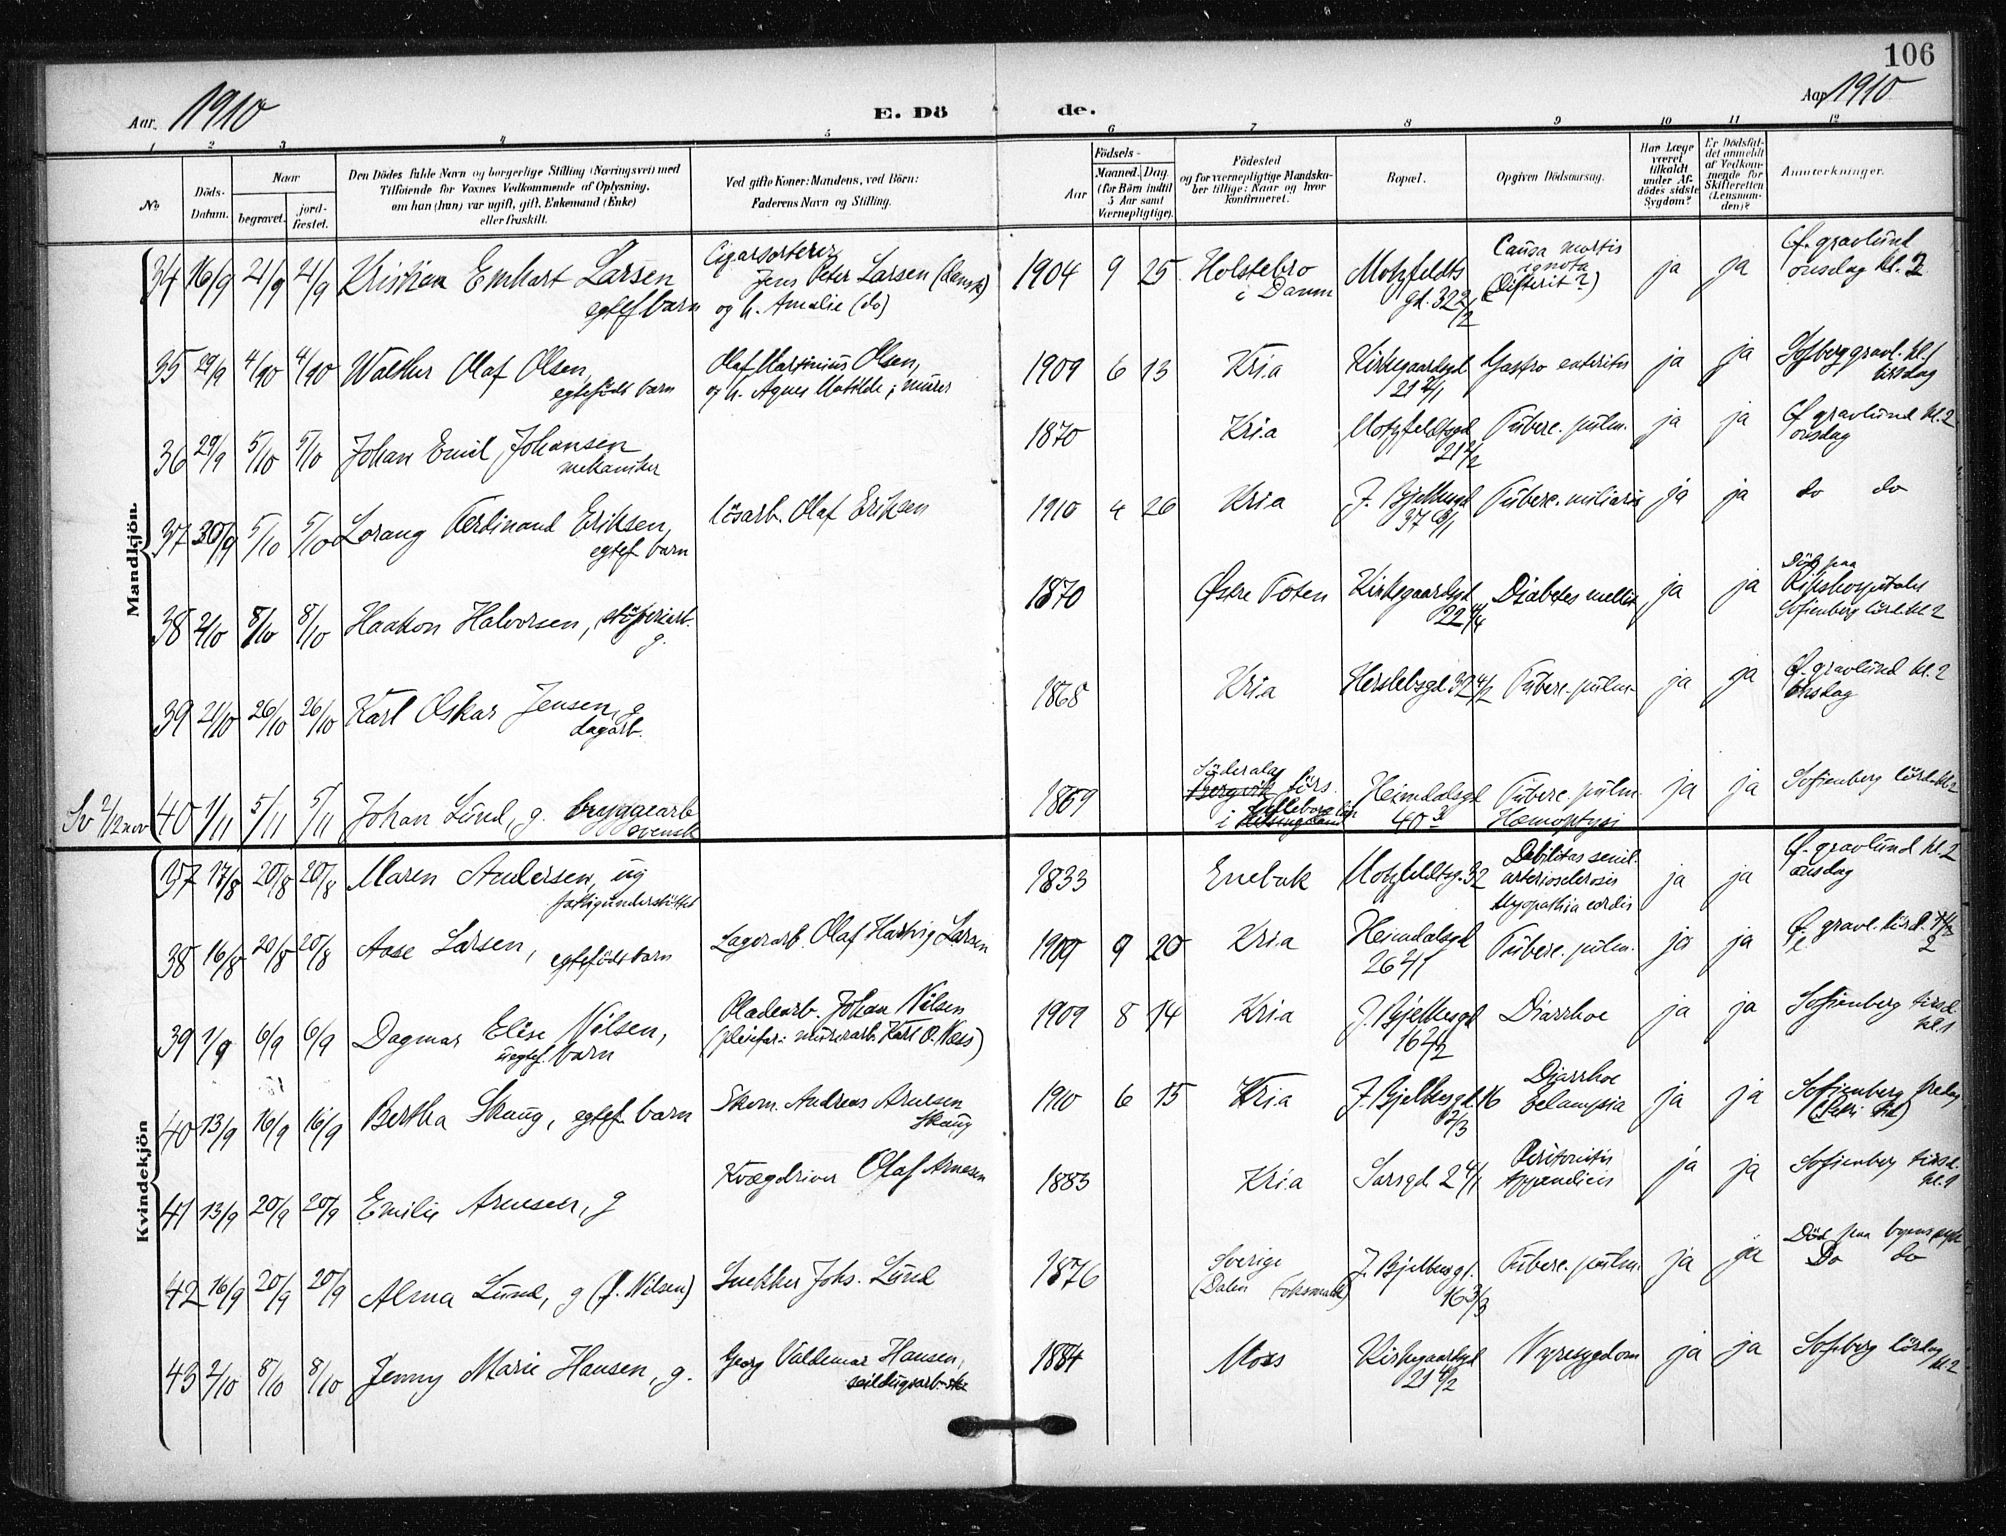 106
Aar. 1910
E. Dö de.
Aar 1910
1 2 3 4 5 6 7 8 9 10 11 12
No
Døds-Datum.
Naar
begravet.
jord-fæstet.
Den Dödes fulde Navn og borgerlige Stilling (Næringsvei) med
Tilföiende for Voxnes Vedkommende af Oplysning,
om han (hun) var ugift, gift, Enkemand (Enke)
eller fraskilt.
Ved gifte Koner: Mandens, ved Börn:
Faderens Navn og Stilling.
Födsels-
Aar
Maaned. Dag.
(for Börn indtil
5 Aar samt
Værnepligtige).
Födested
og for værnepligtige Mandska-
ber tillige: Naar og hvor
konfirmeret.
Bopæl.
Opgiven Dödsaarsag.
Har Læge
været
tilkaldt
under Af-
dödes sidste
Sygdom?
Er Dödsfal-
det anmeldt
af Vedkom-
mende for
Skifteretten
(Lensman-
den)?
Anmærkninger.
Mandkjön.
34 16/9 21/9 21/9 Kristian Emhart Larsen
egtef barn
Cigarsorterer
Jens Peter Larsen (dansk)
og h. Amalie (do)
1904 9 25 Holstebro
i Danm
Motzfeldts
gd. 32 2/2
Causa mortis
ignota
(Difterit?)
ja ja
Ø. gravlund
onsdag kl. 2
35 29/9 4/90 4/90 Walther Olaf Olsen,
egtefödt barn
Olaf Martinius Olsen,
og h. Agnes Matilde; murer
1909 6 13 Kria
Kirkegaardsgd
21 2/1
Gastro enteritis
ja ja
Sofberg gravl. kl. 1
tirsdag
36 29/9 5/10 5/10 Johan Emil Johansen
mekaniker
1870 Kria
Motzfeldtsgd
21 2/2
Tuberc. pulm.
ja ja
Ø. gravlund kl. 2
onsdag
37 30/9 5/10 5/10 Lorang Ferdinand Eriksen,
egtef. barn
lösarb. Olaf Eriksen
1910 4 26 Kria
J. Bjelkesgd
37
Tuberc. miliaris
ja ja do do
38 2/10 8/10 8/10 Haakon Halvorsen, støperiarb.
g.
1870 Østre Toten
Kirkegaardsgd
22 4/4
Diabetes mellit
ja ja
Död paa
Rikshospitalet
Sofienberg lörd kl. 2
39 21/10 26/10 26/10 Karl Oskar Jensen, g
dagarb.
1868 Kria Herslebsgd 32 4/2 Tuberc. pulm.
ja ja
Ø. gravlund kl. 2
onsdag
Sv 2/12 nov
40 1/11 5/11 5/11 Johan Lund, g. bryggearb
svensk
1869
Söderala
Bergvik förs.
i Helsingland
Heimdalsgd
40
Tuberc. pulm.
Hæmoptysi
ja ja Sofienberg lörd. kl 2
Kvindekjön
37 17/8 20/8 20/8 Maren Andersen, ug
fattigunderstöttet
1833 Enebak Motzfeldtsg. 32
Debilitas senil.
arteriosclerosis
Myopathia cordis
ja ja
Ø. gravlund kl. 2
onsdag
38 16/8 20/8 20/8 Aase Larsen,
egtefödt barn
Lagerarb. Olaf Hartvig Larsen
1909 9 20 Kria
Heimdalsgd
26 2/1
Tuberc. pulm.
ja ja
Ø. gravl. lörd.
2
39 1/9 6/9 6/9 Dagmar Elise Nilsen,
uegtef. barn
Pladearb. Johan Nilsen
(pleiefar: murerarb. Karl O. Næss)
1909 8 14 Kria
J. Bjelkesgd
16 2/2
Diarrhoe
ja ja
Sofienberg tirsd.
kl. 1
40 13/9 16/9 16/9 Bertha Skaug, egtef. barn
Skom. Andreas Arnesen
Skaug
1910 6 15 Kria
J. Bjelkesgd. 16
2/3
Diarrhoe
Eclampsia
ja ja
Sofienberg fredag
41 13/9 20/9 20/9 Emilie Arnesen, g
Kvægdriver Olaf Arnesen
1883 Kria Sarsgd. 2 4/1
Peritonitis
Appendicis
ja ja
Sofienberg tirsd.
kl. 1
42 16/9 20/9 20/9 Alma Lund, g (f. Nilsen)
Snekker Johs. Lund
1876
Sverige
(Dalen Foksmark)
J. Bjelkesgd.
16 3/3
Tuberc. pulm.
ja ja
Död paa byens
Do do
43 2/10 8/10 8/10 Jenny Marie Hansen, g.
Georg Valdemar Hansen,
seildugsarb.
1884 Moss
Kirkegaardsgd
21 4/2
Nyresygdom
ja ja
Sofberg lördag
kl. 2